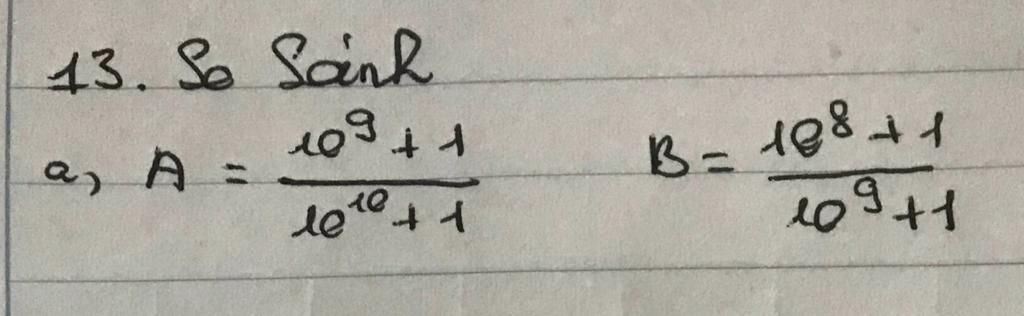 13. So Sánh
a, A = \frac{10^9 + 1}{10^{10} + 1} B = \frac{10^8 + 1}{10^9 + 1}